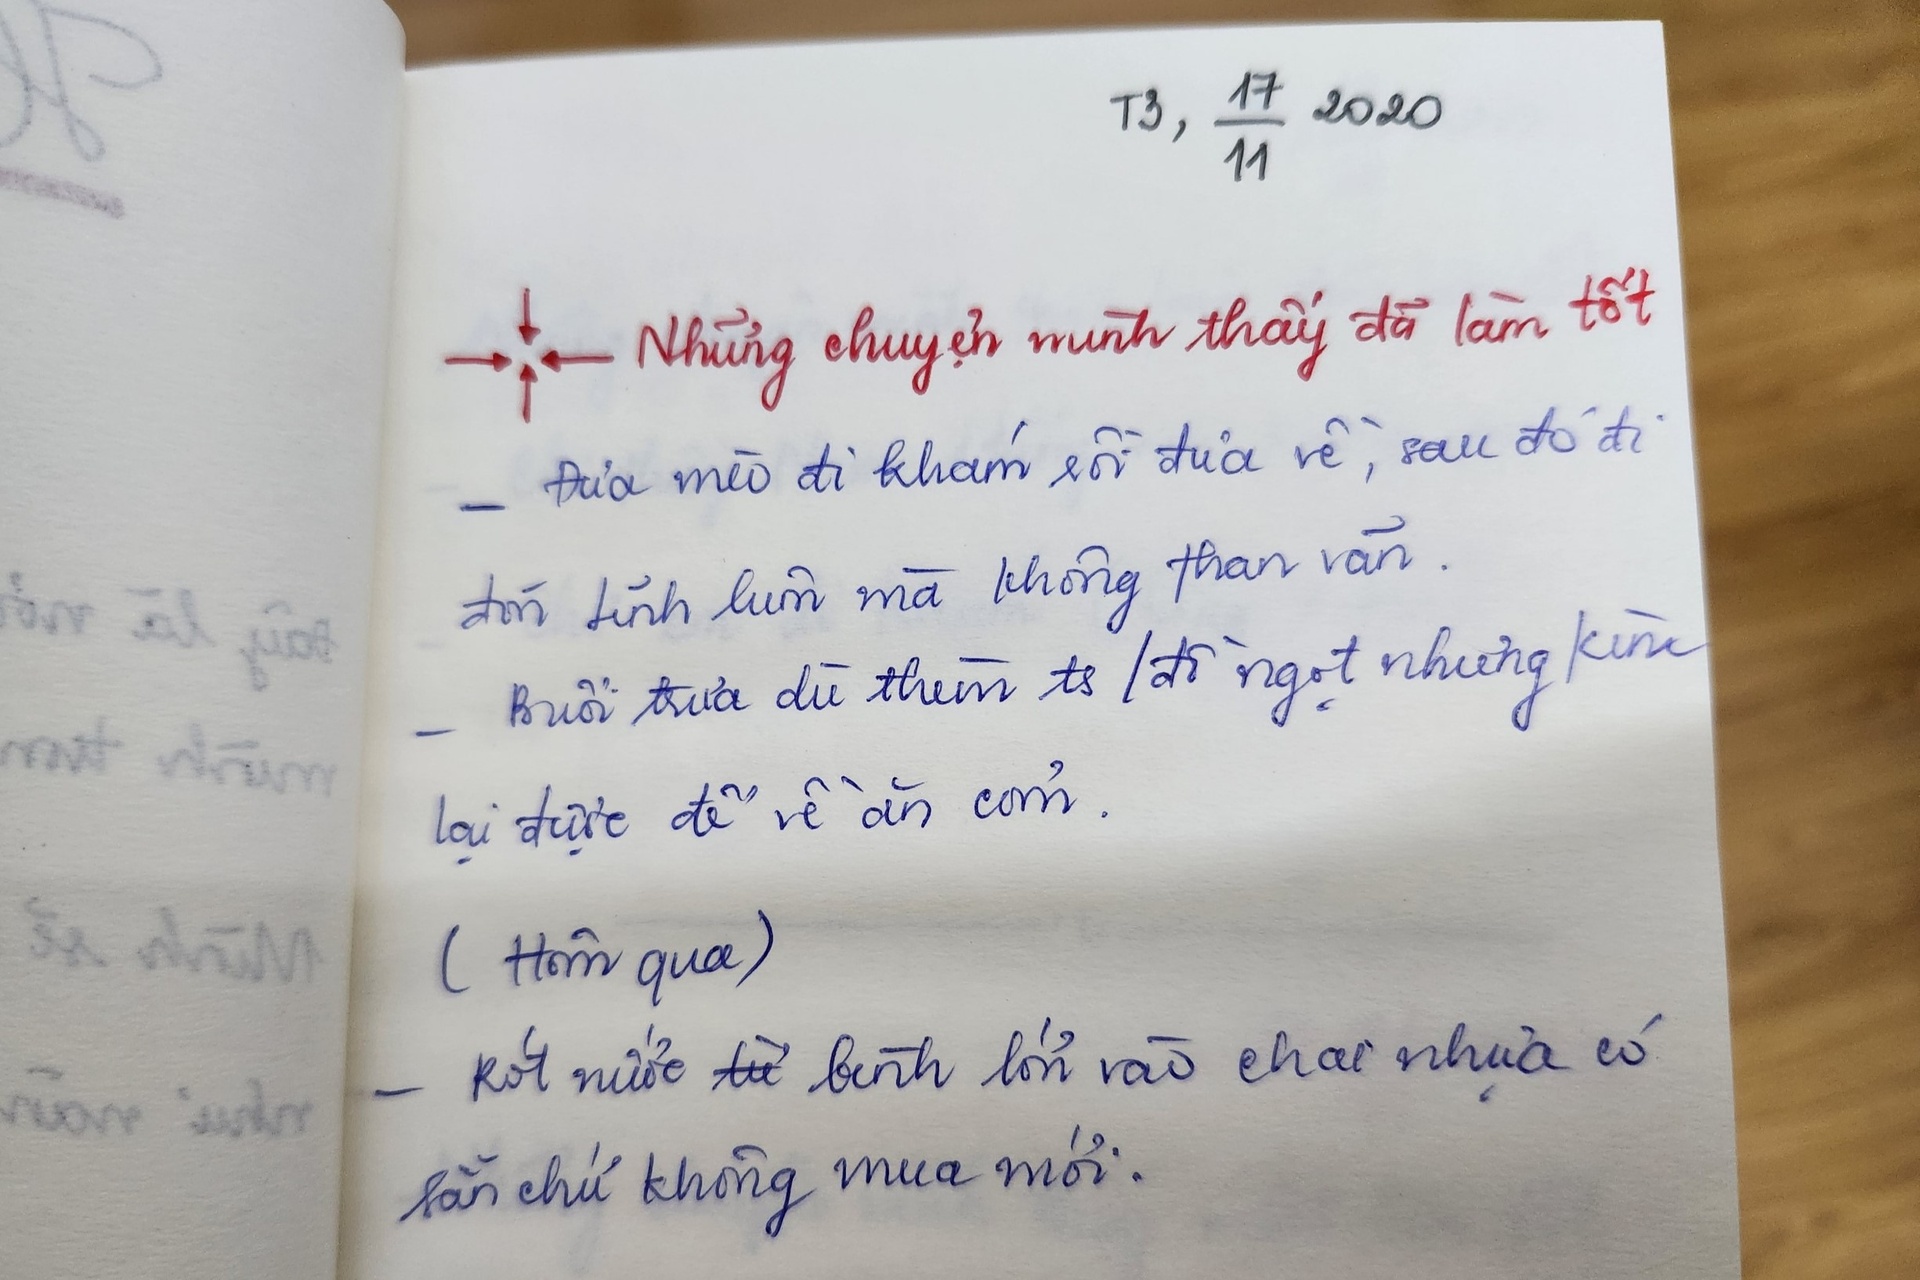 T3, 17/11 2020
Những chuyện mình thấy đã làm tốt
- Đưa mèo đi khám rồi đưa về, sau đó đi
đón luôn mà không than vãn.
- Buổi trưa dù thèm ts / đồ ngọt nhưng kìm
lại được để về ăn cơm.
( Hôm qua )
- Rót nước từ bình lớn vào chai nhựa có
sẵn chứ không mua mới.